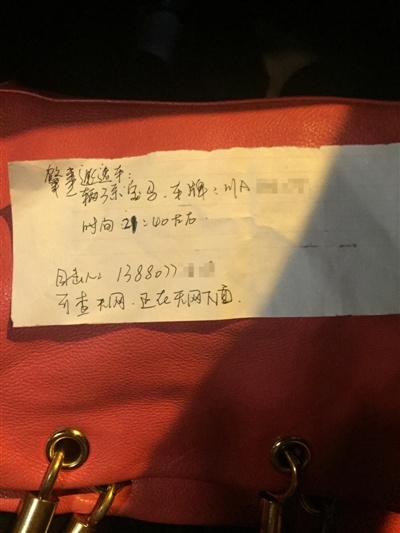 肇事逃逸车:
辆3系宝马.车牌:川A
时间21:40左右.
目击人: 1388077
可查天网.正在天网下面.